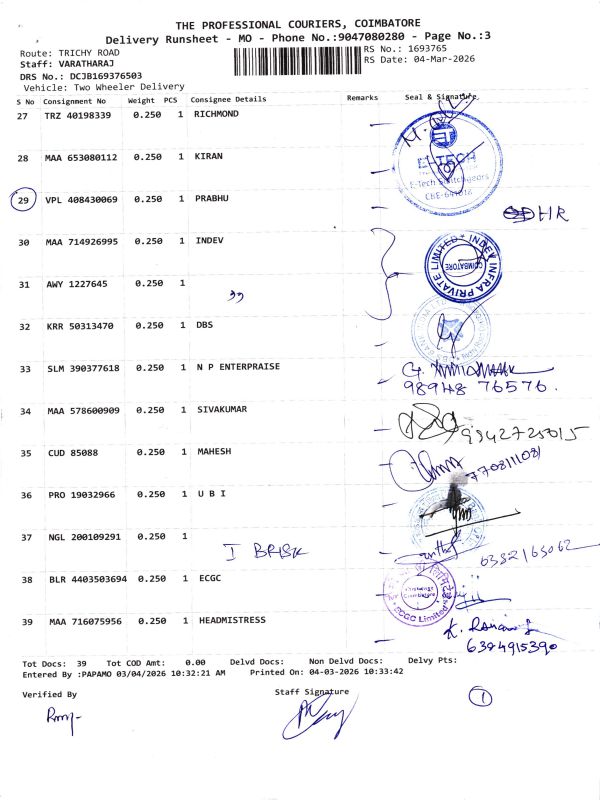 THE PROFESSIONAL COURIERS, COIMBATORE
Delivery Runsheet - MO - Phone No.:9047080280 - Page No.:3
Route: TRICHY ROAD
RS No.: 1693765
Staff: VARATHARAJ
RS Date: 04-Mar-2026
DRS No.: DCJB169376503
Vehicle: Two Wheeler Delivery
S No Consignment No Weight PCS Consignee Details Remarks Seal & Signature
27 TRZ 40198339 0.250 1 RICHMOND
28 MAA 653080112 0.250 1 KIRAN
E-TECH
E-tech Switchgears
29 VPL 408430069 0.250 1 PRABHU
30 MAA 714926995 0.250 1 INDEV
INDEV INFRA PRIVATE LIMITED
COIMBATORE
31 AWY 1227645 0.250 1
"
32 KRR 50313470 0.250 1 DBS
33 SLM 390377618 0.250 1 N P ENTERPRAISE
98948 76576.
34 MAA 578600909 0.250 1 SIVAKUMAR
9842725015
35 CUD 85088 0.250 1 MAHESH
7708111081
36 PRO 19032966 0.250 1 U B I
37 NGL 200109291 0.250 1
I BRISK
6382165062
38 BLR 4403503694 0.250 1 ECGC
ECGC Limited
39 MAA 716075956 0.250 1 HEADMISTRESS
6384915390
Tot Docs: 39 Tot COD Amt: 0.00 Delvd Docs: Non Delvd Docs: Delvy Pts:
Entered By :PAPAMO 03/04/2026 10:32:21 AM Printed On: 04-03-2026 10:33:42
Verified By
Staff Signature
1